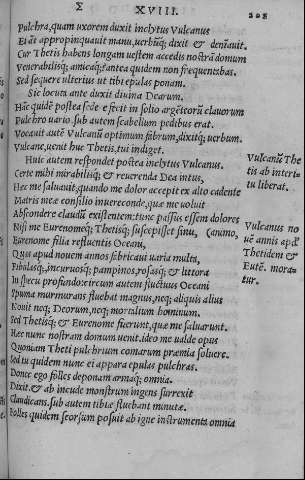 Σ XVIII. 208
Pulchra, quam uxorem duxit inclytus Vulcanus
Ei aūt appropinquavit manu, uerbūq; dixit & denōauit.
Cur Thetis habens longam uestem accedis nostrā domum
Venerabilisq; amicaq; antea quidem non frequentabas.
Sed sequere ulterius ut tibi epulas ponam.
Sic locuta ante duxit diuina Dearum.
Hāc quidē postea sede fecit in solio argēteorū clauorum
Pulchro uario. sub autem scabellum pedibus erat.
Vocauit autē Vulcanū optimum fabrum, dixitq; uerbum.
Vulcane, uenit huc Thetis, tui indiget.
Huic autem respondet postea inclytus Vulcanus.
Certe mihi mirabilisq; & reuerenda Dea intus,
Hec me saluauit, quando me dolor accepit ex alto cadente
Matris meæ consilio inuerecondæ, quæ me uoluit
Abscondere claudū existentem: tunc passus essem dolores
Nisi me Eurenomeq; Thetisq; suscepisset sinu, (animo,
Eurenome filia refluentis Oceani,
Quas apud nouem annos fabricaui uaria multa,
Fibulasq;, incuruosq; pampinos, rosasq; & littora
In specu profundo: circum autem fluctuus Oceani
Spuma murmurans fluebat magnus, neq; aliquis alius
Nouit neq; Deorum, neq; mortalium hominum.
Sed Thetisq; & Eurenome fierunt, quæ me saluarunt.
Hæc nunc nostram domum uenit. ideo me ualde opus
Quoniam Theti pulchrium comarum præmia soluere.
Sed tu quidem nunc ei appara epulas pulchras.
Donec ego folles deponam armaq; omnia.
Dixit & ab incude monstrum ingens surrexit
Claudicans. sub autem tibiæ fluebant minutæ.
Folles quidem seorsum posuit ab igne instrumenta omnia
Vulcanū The
tis ab interi
tu liberat.
Vulcanus no
uē annis apd'
Thetidem &
Eutē. mora
tur.